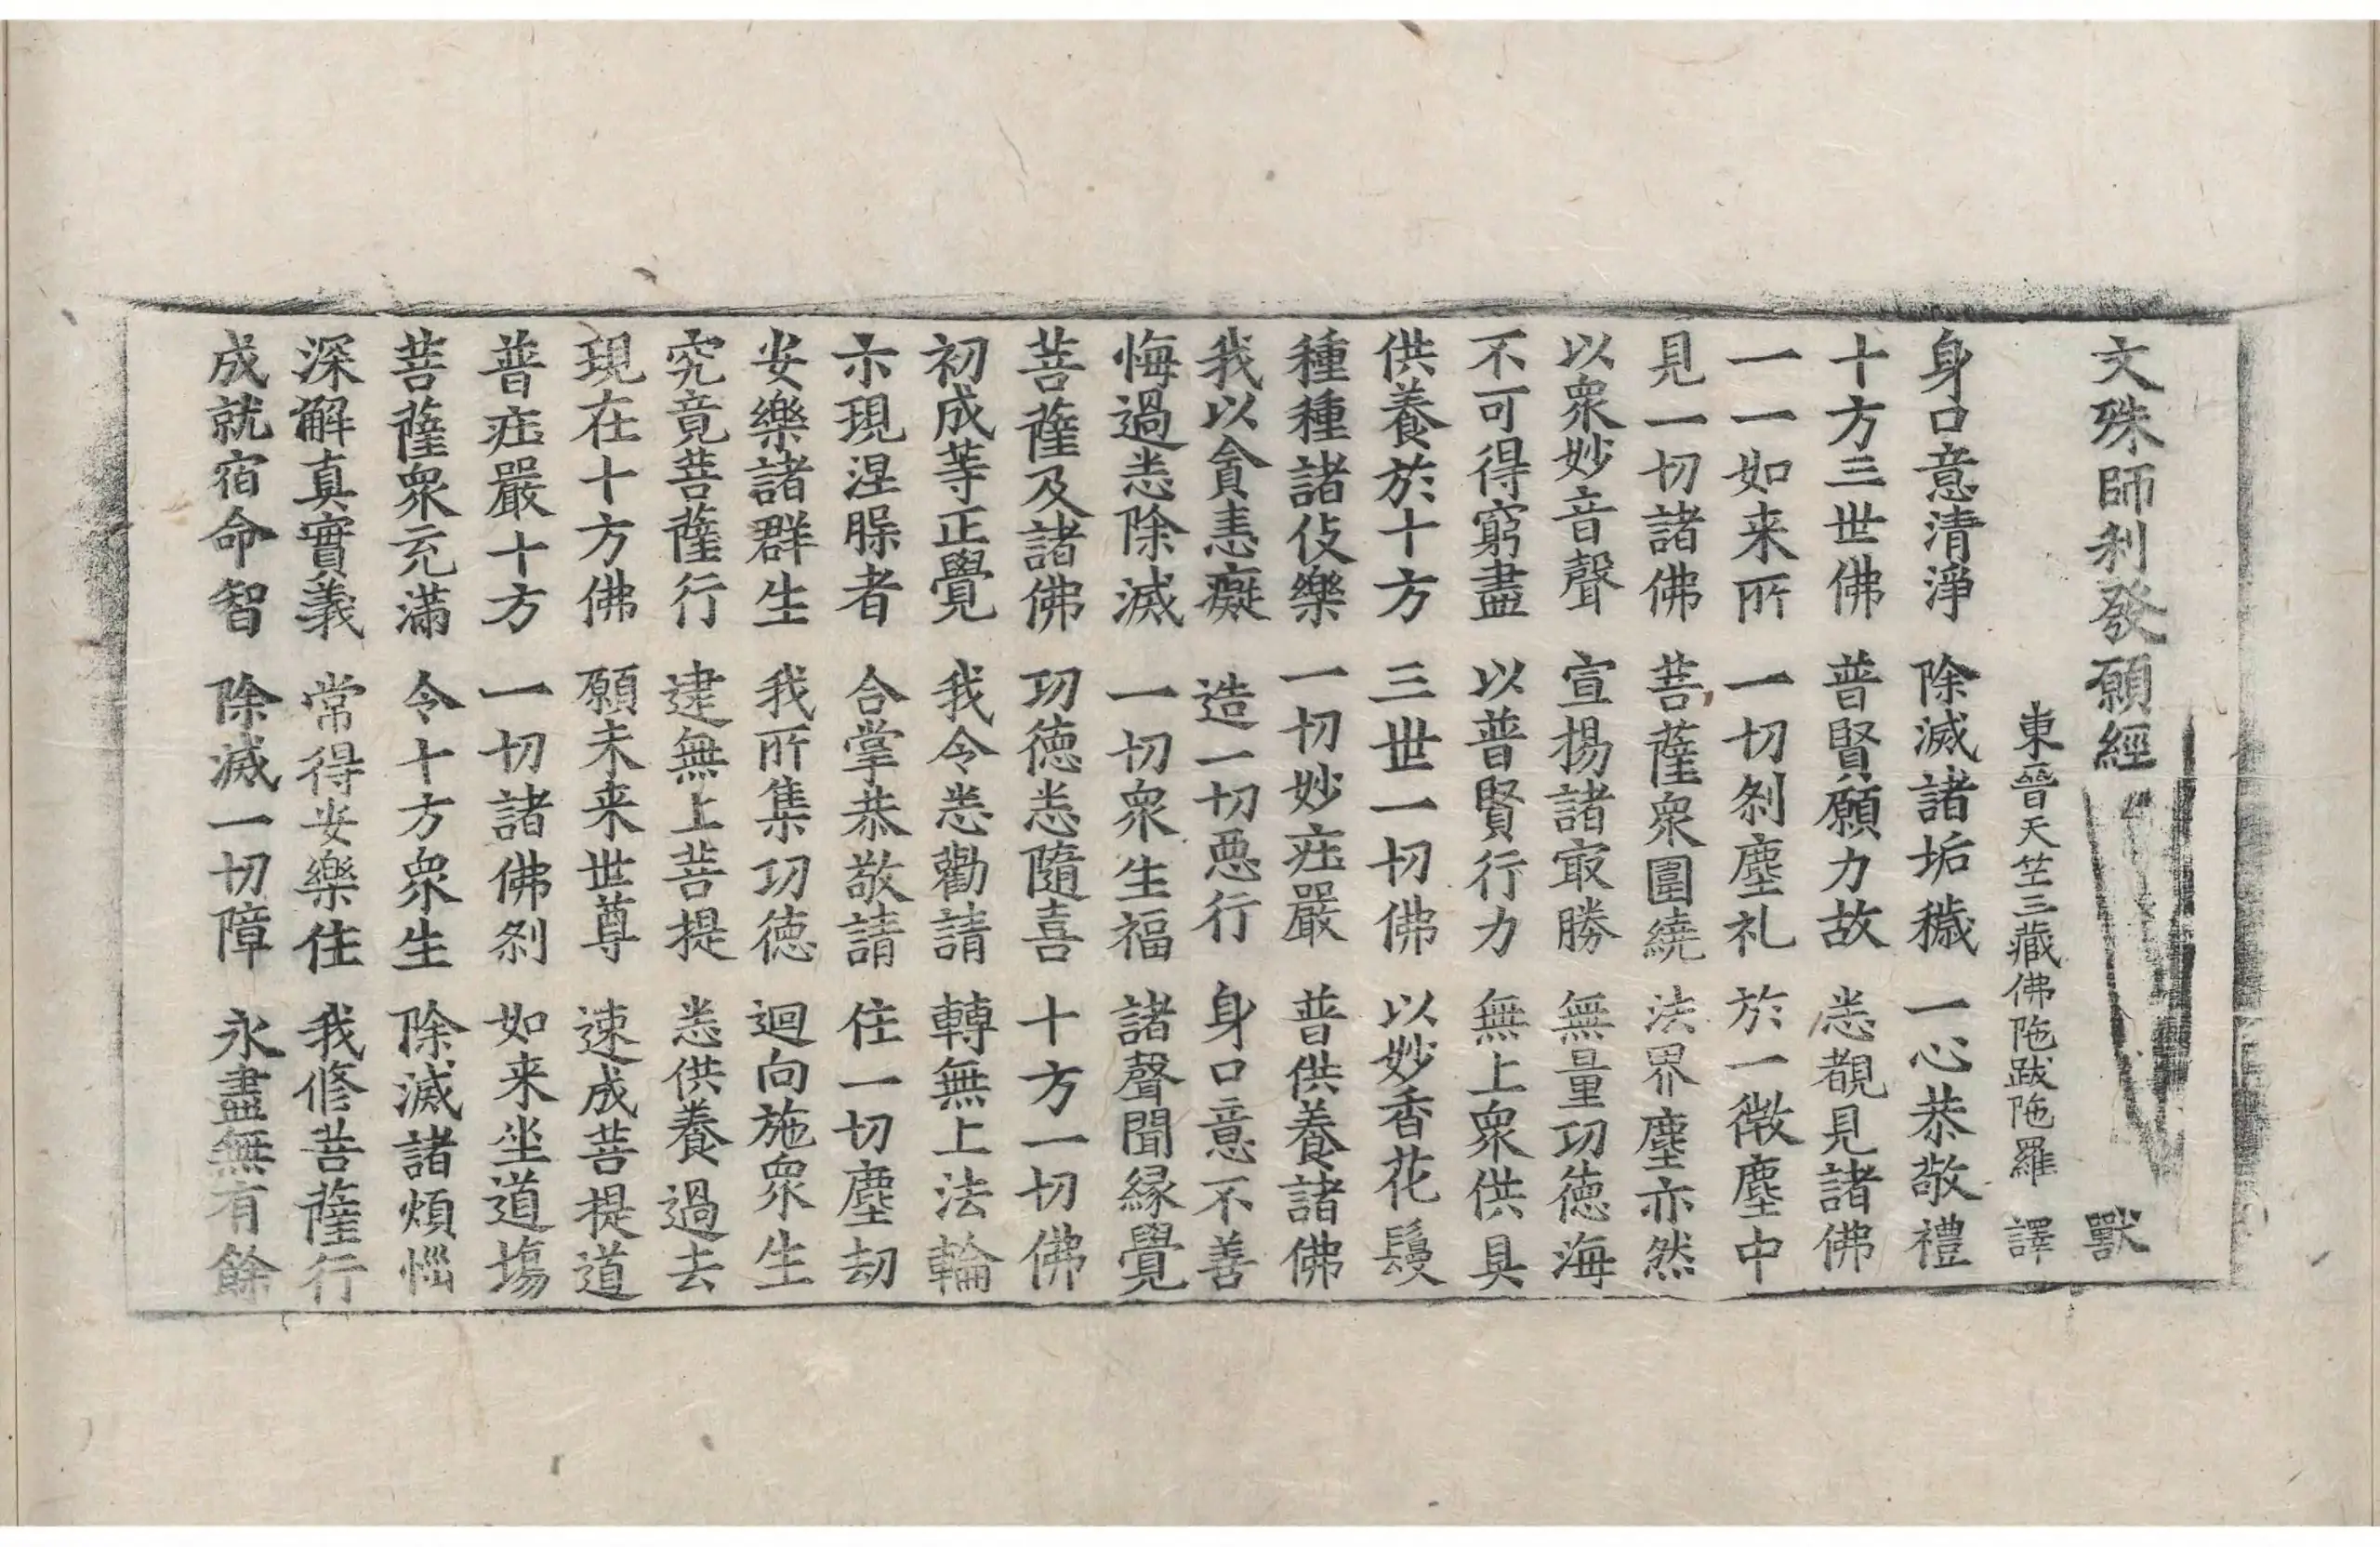 文殊師利發願經　獸
東晉天竺三藏佛陁跋陁羅　譯
身口意清淨　除滅諸垢穢　一心恭敬禮
十方三世佛　普賢願力故　悉覩見諸佛
一一如来所　一切刹塵礼　於一微塵中
見一切諸佛　菩薩衆圍繞　法界塵亦然
以衆妙音聲　宣揚諸㝡勝　無量功徳海
不可得窮盡　以普賢行力　無上衆供具
供養於十方　三世一切佛　以妙香花鬘
種種諸伎樂　一切妙庄嚴　普供養諸佛
我以貪恚癡　造一切惡行　身口意不善
悔過悉除滅　一切衆生福　諸聲聞縁覺
菩薩及諸佛　功徳悉隨喜　十方一切佛
初成等正覺　我今悉勸請　轉無上法輪
示現涅槃者　合掌恭敬請　住一切塵劫
安樂諸群生　我所集功徳　迴向施衆生
究竟菩薩行　逮無上菩提　悉供養過去
現在十方佛　願未来世尊　速成菩提道
普庄嚴十方　一切諸佛刹　如来坐道場
菩薩衆充滿　令十方衆生　除滅諸煩惱
深解真實義　常得安樂住　我修菩薩行
成就宿命智　除滅一切障　永盡無有餘